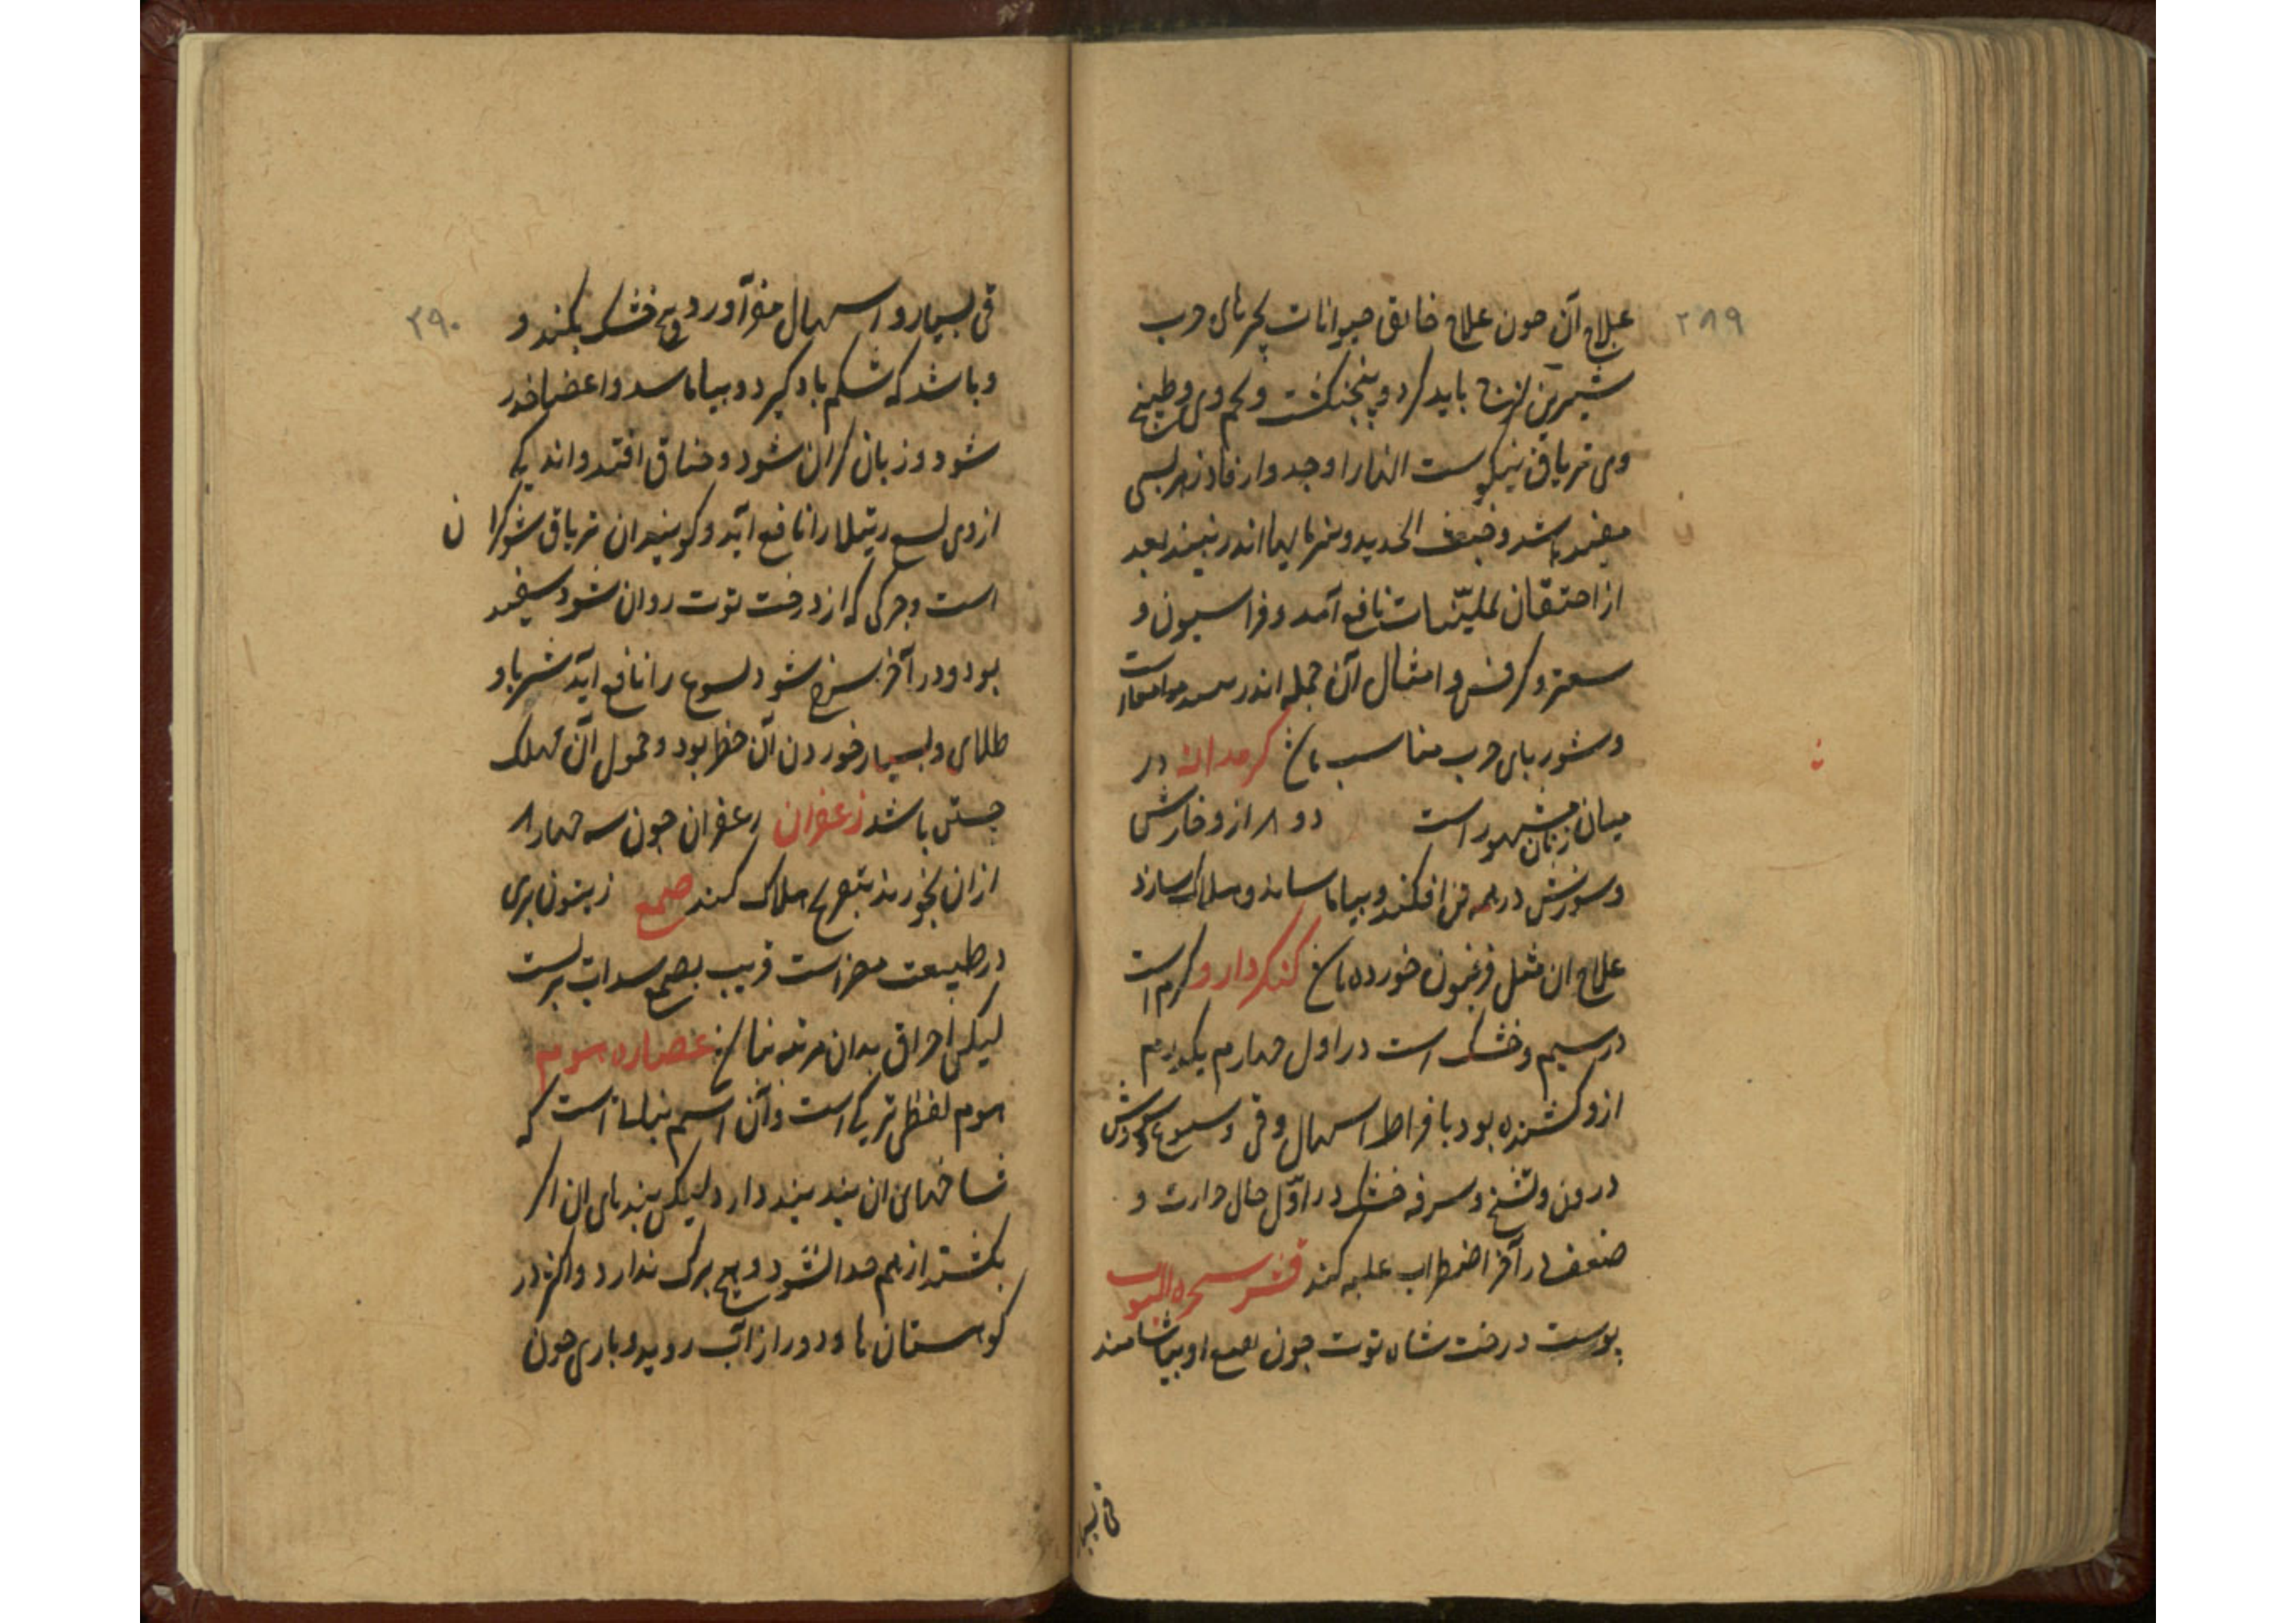 ۲۸۹
علاج آن چون علاج خانق حیوانات بچیزهای چرب
شیرین لزج باید کرد و پنجنکشت و تخم وی و طبیخ
وی تریاق نیکوست انها را وجدوار فادزهر بسی
مفید باشد و خبث الحدید و شربا لها اندر نبیند بعد
از احتقان بملینات نافع آمد و فراسیون و
سعتر و کرفس و امثال آن جمله اندر
و شوربای چرب مناسب کرمدانه در
میان زنان مشهور است دو از و خارش
و سوزش در همه تن افکند و بیاماساند و هلاک سازد
علاج ان مثل فرفیون خورده کنکردارو کرم است
در سیم و خشک است در اول چهارم یکدرم
ازو کشنده بود بافراط اسهال و قی و سوزش
درون و تشنج و سرفه خشک در اول حال حرارت و
ضعف در آخر اضطراب غلبه کند قشر
پوست درخت شاه توت چون او بیاشامند
قی بسیا
۲۹۰
قی بسیار و اسهال آورد و خشک بکند و
و باشد که شکم باد کیرد و بیاماسد و اعضا خدر
شود و زبان کران شود و خناق افتد و اندکی
از وی لسع رتیلا را نافع آید و کویند ان تریاق شوکران
است و چرکی که از درخت توت روان شود سفید
بود و در آخر سرخ شود لسوع را نافع آید شربا و
طلای و بسیار خوردن آن خطر بود و حمول آن مهلک
جنین باشد زعفران زعفران چون سه چهار
ازان بخورند بتفریح هلاک کند صمغ زیتون بری
در طبیعت مضر است قریب بصمغ سداب برّیست
لیکن احراق بدان مرتبه عصاره سوم
سوم لفظی ترکی است و آن اسم نباتی است که
شاخهای ان بند بند دارد لیکن بندهای ان اکر
بکشند از هم جدا نشود و هیچ برک ندارد و اکثر در
کوهستان ها و دور از آب روید و باری چون